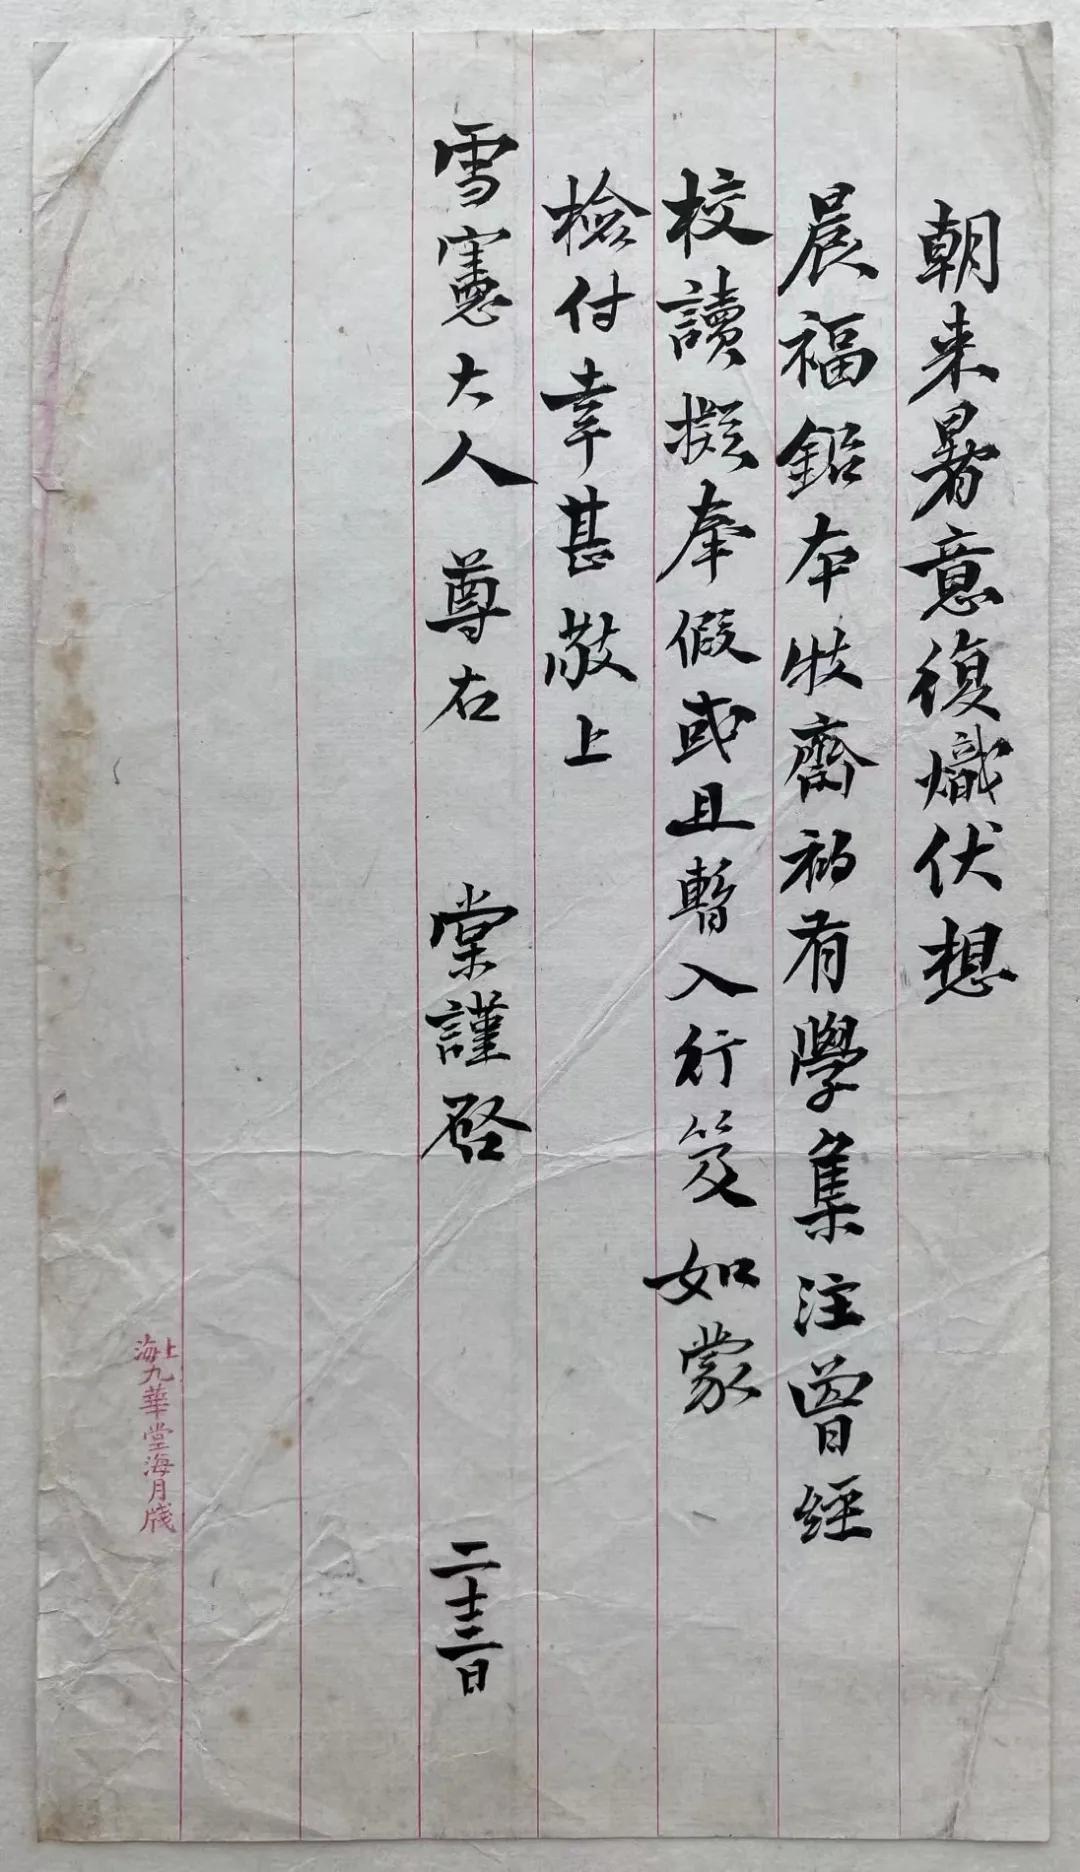 朝来暑意復熾伏想
晨福鉛本牧齋初有學集注曾經
校讀擬奉假或且暫入行笈如蒙
檢付幸甚敬上
雪憲大人 尊右 棠謹啓 二十二日
上海九華堂海月牋